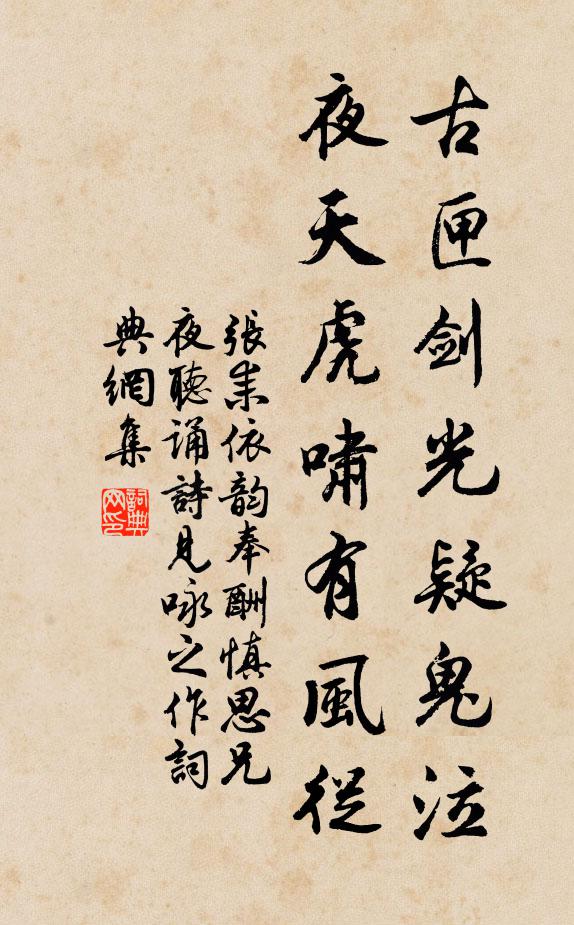 古匣劍光疑鬼泣
夜天虎嘯有風從
張耒依韵奉酬慎思兄
夜聽誦詩見咏之作詞
典網集
詞典
网印